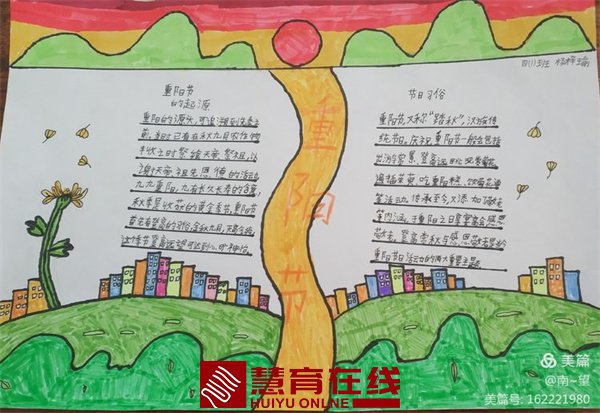 四(1)班 杨梓瑜
重阳节
的起源
重阳的源头,可追溯到先秦之
前。书曰:已有在秋九月农作物
丰收之时祭飨天帝、祭祖,以
谢天帝、祖先恩德的活动
九九重阳,九有长久长寿的含义,
秋季是收获的黄金季节,重阳节
首先有登高的习俗,金秋九月,天高气爽
这个季节登高远望可达到心旷神怡。
重
阳
节
节日习俗
重阳节,又称“踏秋”,汉族传
统节日。庆祝重阳节一般会包括
出游赏景、登高远眺、观赏菊花
遍插茱萸、吃重阳糕、饮菊花酒
等活动,传承至今,又添加了敬老
等内涵,于重阳之日享宴高会,感恩
敬老。登高赏秋与感恩敬老是当今
重阳节日活动的两大重要主题。
慧育在线
HUIYU ONLINE
美篇
@南~望
美篇号: 162221980